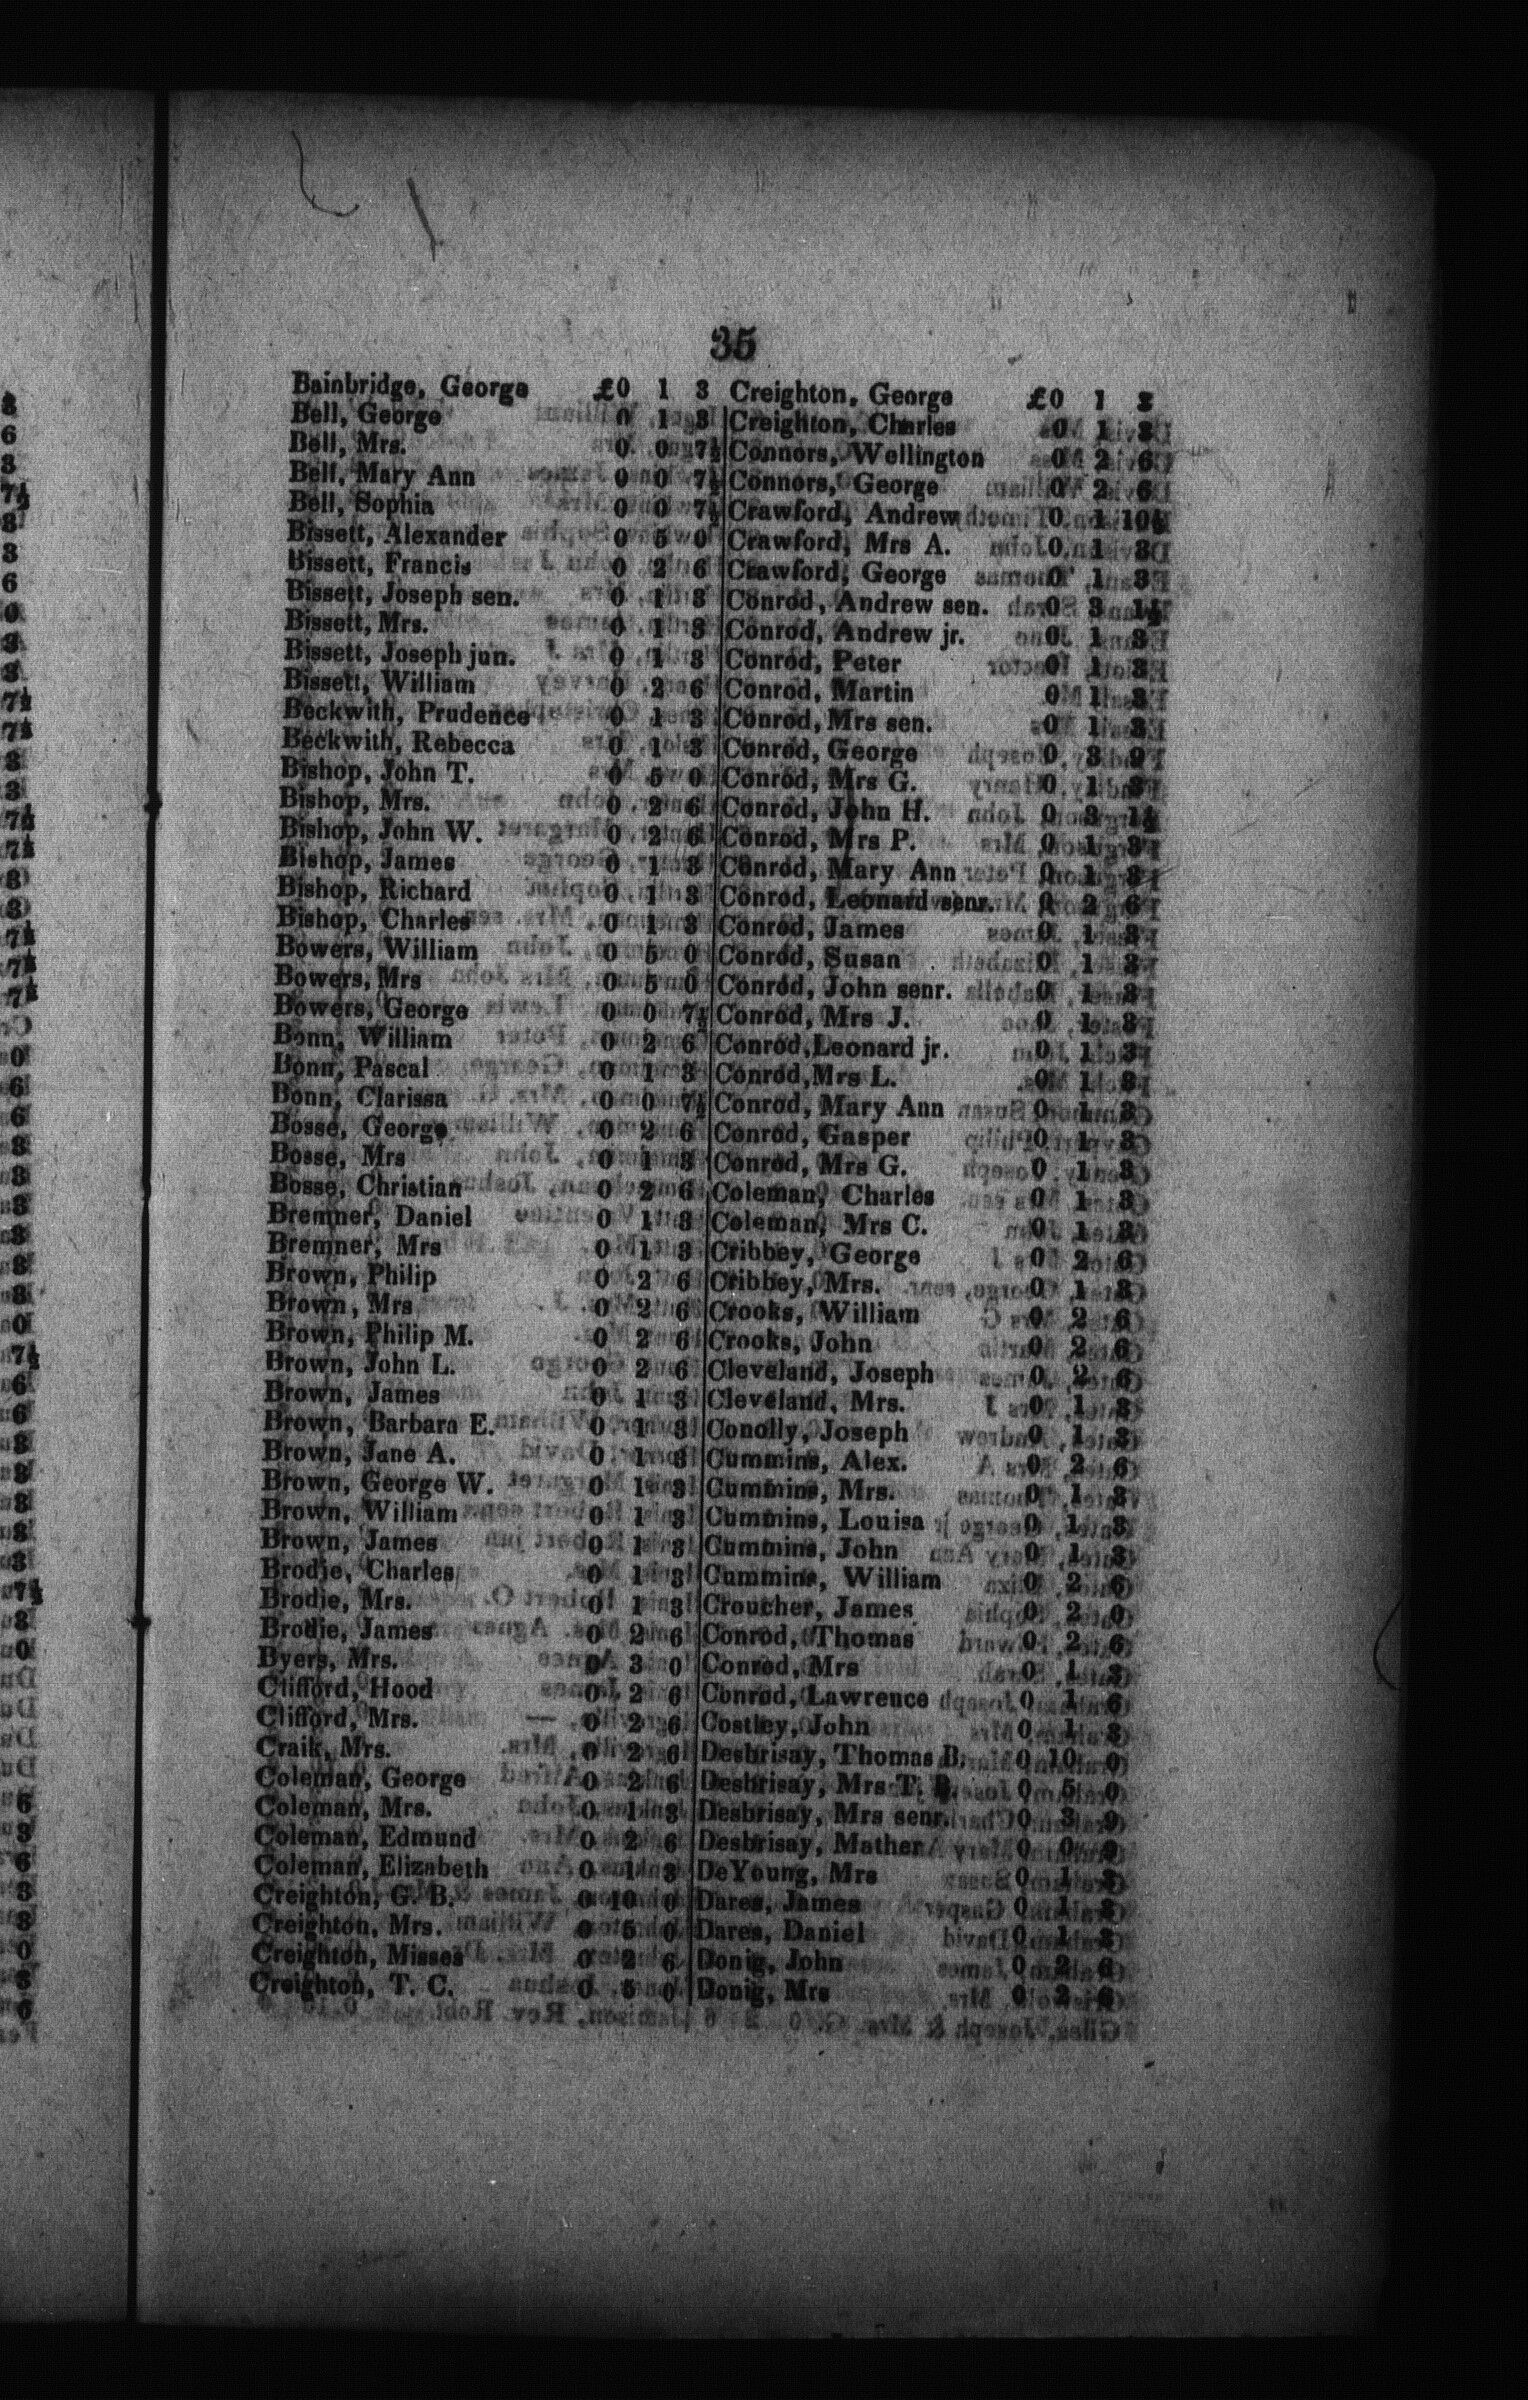 35
Bainbridge, George £0 1 3
Bell, George 0 1 3
Bell, Mrs. 0 0 7½
Bell, Mary Ann 0 0 7½
Bell, Sophia 0 0 7½
Bissett, Alexander 0 5 0
Bissett, Francis 0 2 6
Bissett, Joseph sen. 0 1 3
Bissett, Mrs. 0 1 3
Bissett, Joseph jun. 0 1 3
Bissett, William 0 2 6
Beckwith, Prudence 0 1 3
Beckwith, Rebecca 0 1 3
Bishop, John T. 0 5 0
Bishop, Mrs. 0 2 6
Bishop, John W. 0 2 6
Bishop, James 0 1 3
Bishop, Richard 0 1 3
Bishop, Charles 0 1 3
Bowers, William 0 5 0
Bowers, Mrs 0 5 0
Bowers, George 0 0 7½
Bonn, William 0 2 6
Bonn, Pascal 0 1 3
Bonn, Clarissa 0 0 7½
Bosse, George 0 2 6
Bosse, Mrs 0 1 3
Bosse, Christian 0 2 6
Bremner, Daniel 0 1 3
Bremner, Mrs 0 1 3
Brown, Philip 0 2 6
Brown, Mrs 0 2 6
Brown, Philip M. 0 2 6
Brown, John L. 0 2 6
Brown, James 0 1 3
Brown, Barbara E. 0 1 3
Brown, Jane A. 0 1 3
Brown, George W. 0 1 3
Brown, William 0 1 3
Brown, James 0 1 3
Brodie, Charles 0 1 3
Brodie, Mrs. 0 1 3
Brodie, James 0 2 6
Byers, Mrs. 0 3 0
Clifford, Hood 0 2 6
Clifford, Mrs. 0 2 6
Craik, Mrs. 0 2 6
Coleman, George 0 2 6
Coleman, Mrs. 0 1 3
Coleman, Edmund 0 2 6
Coleman, Elizabeth 0 1 3
Creighton, G. B. 0 10 0
Creighton, Mrs. 0 5 0
Creighton, Misses 0 2 6
Creighton, T. C. 0 5 0
Creighton, George £0 1 3
Creighton, Charles 0 1 3
Connors, Wellington 0 2 6
Connors, George 0 2 6
Crawford, Andrew 0 1 10½
Crawford, Mrs A. 0 1 3
Crawford, George 0 1 3
Conrod, Andrew sen. 0 3 1½
Conrod, Andrew jr. 0 1 3
Conrod, Peter 0 1 3
Conrod, Martin 0 1 3
Conrod, Mrs sen. 0 1 3
Conrod, George 0 3 9
Conrod, Mrs G. 0 1 3
Conrod, John H. 0 3 1½
Conrod, Mrs P. 0 1 3
Conrod, Mary Ann 0 1 3
Conrod, Leonard senr. 0 2 6
Conrod, James 0 1 3
Conrod, Susan 0 1 3
Conrod, John senr. 0 1 3
Conrod, Mrs J. 0 1 3
Conrod, Leonard jr. 0 1 3
Conrod, Mrs L. 0 1 3
Conrod, Mary Ann 0 1 3
Conrod, Gasper 0 1 3
Conrod, Mrs G. 0 1 3
Coleman, Charles 0 1 3
Coleman, Mrs C. 0 1 3
Cribbey, George 0 2 6
Cribbey, Mrs. 0 1 3
Crooks, William 0 2 6
Crooks, John 0 2 6
Cleveland, Joseph 0 2 6
Cleveland, Mrs. 0 1 3
Conolly, Joseph 0 1 3
Cummins, Alex. 0 2 6
Cummins, Mrs. 0 1 3
Cummins, Louisa 0 1 3
Cummins, John 0 1 3
Cummins, William 0 2 6
Croucher, James 0 2 0
Conrod, Thomas 0 2 6
Conrod, Mrs 0 1 3
Conrod, Lawrence 0 1 6
Costley, John 0 1 3
Desbrisay, Thomas B. 0 10 0
Desbrisay, Mrs T. B. 0 5 0
Desbrisay, Mrs senr. 0 3 9
Desbrisay, Mather 0 0 9
DeYoung, Mrs 0 1 3
Dares, James 0 1 3
Dares, Daniel 0 1 3
Donig, John 0 2 6
Donig, Mrs 0 2 6